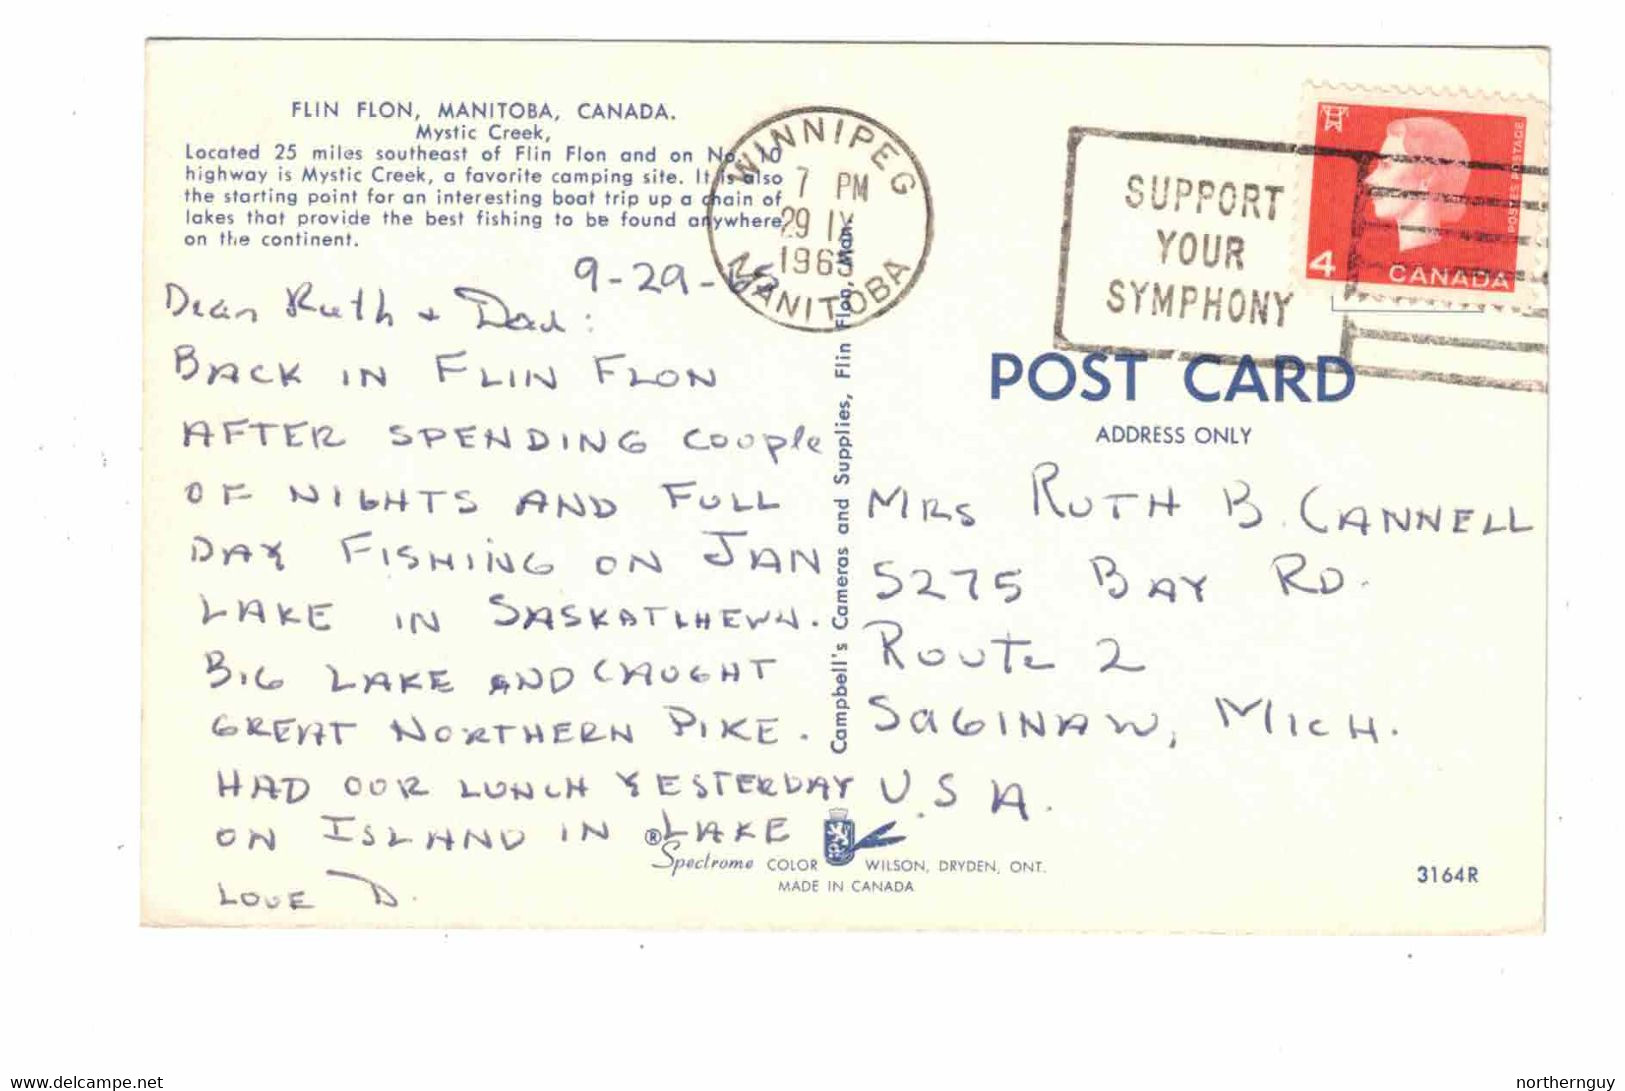 FLIN FLON, MANITOBA, CANADA.
Mystic Creek,
Located 25 miles southeast of Flin Flon and on No. 10
highway is Mystic Creek, a favorite camping site. It is also
the starting point for an interesting boat trip up a chain of
lakes that provide the best fishing to be found anywhere
on the continent.
9-29-65
Dear Ruth + Dad:
BACK IN FLIN FLON
AFTER SPENDING Couple
OF NIGHTS AND FULL
DAY FISHING ON JAN
LAKE IN SASKATCHEWN.
BIG LAKE AND CAUGHT
GREAT NORTHERN PIKE.
HAD OUR LUNCH YESTERDAY
ON ISLAND IN LAKE
LOVE D.
WINNIPEG
7 PM
29 IX
1965
MANITOBA
SUPPORT
YOUR
SYMPHONY
POSTES POSTAGE
4 CANADA
POST CARD
ADDRESS ONLY
MRS RUTH B. CANNELL
5275 BAY RD.
Route 2
SAGINAW, MICH.
U.S.A.
Campbell's Cameras and Supplies, Flin Flon, Man.
® Spectrome COLOR WILSON, DRYDEN, ONT.
MADE IN CANADA
3164R
northernguy